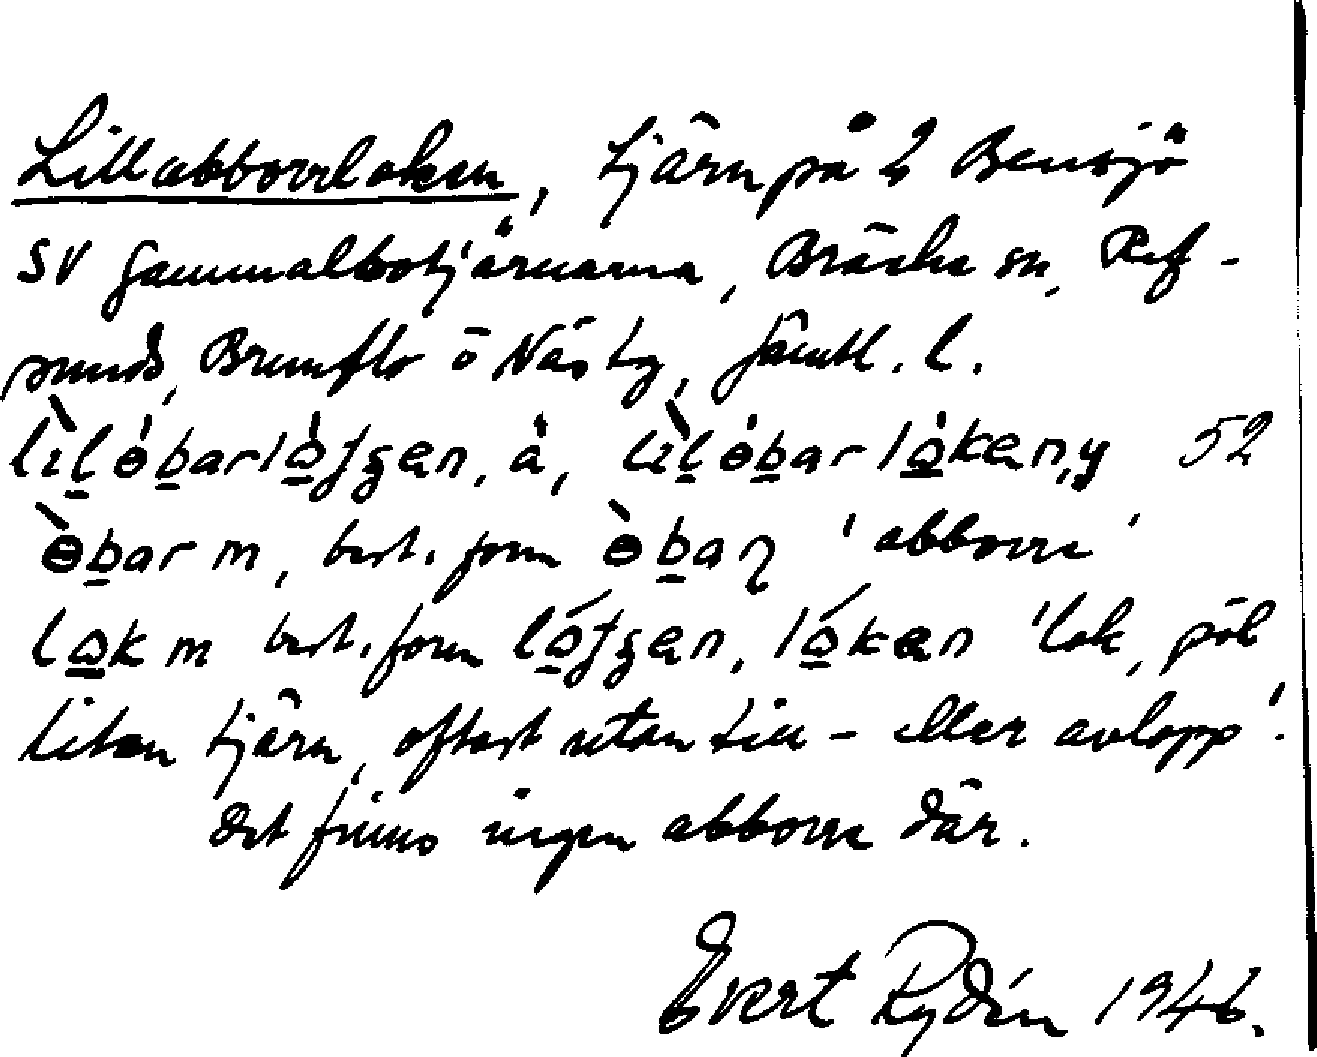 Lillabborrloken, tjärn på 2 Bensjö
SV Gammalbotjärnarna, Bräcke sn, Ref-
sunds, Brunflo o Näs tg, Jämtl. l.
lìl̲ób̲arlo̲ʃʒen, å, lìl̲óbarlo̲ken, y 52
ɵ̀b̲ar m, best. form ɵ̀b̲aɳ 'abborre'
lo̲k m best. form ló̲ʃʒen, ló̲ken 'lok, pöl
liten tjärn, oftast utan till- eller avlopp'.
Det finns ingen abborre där.
Evert Rydén 1946.